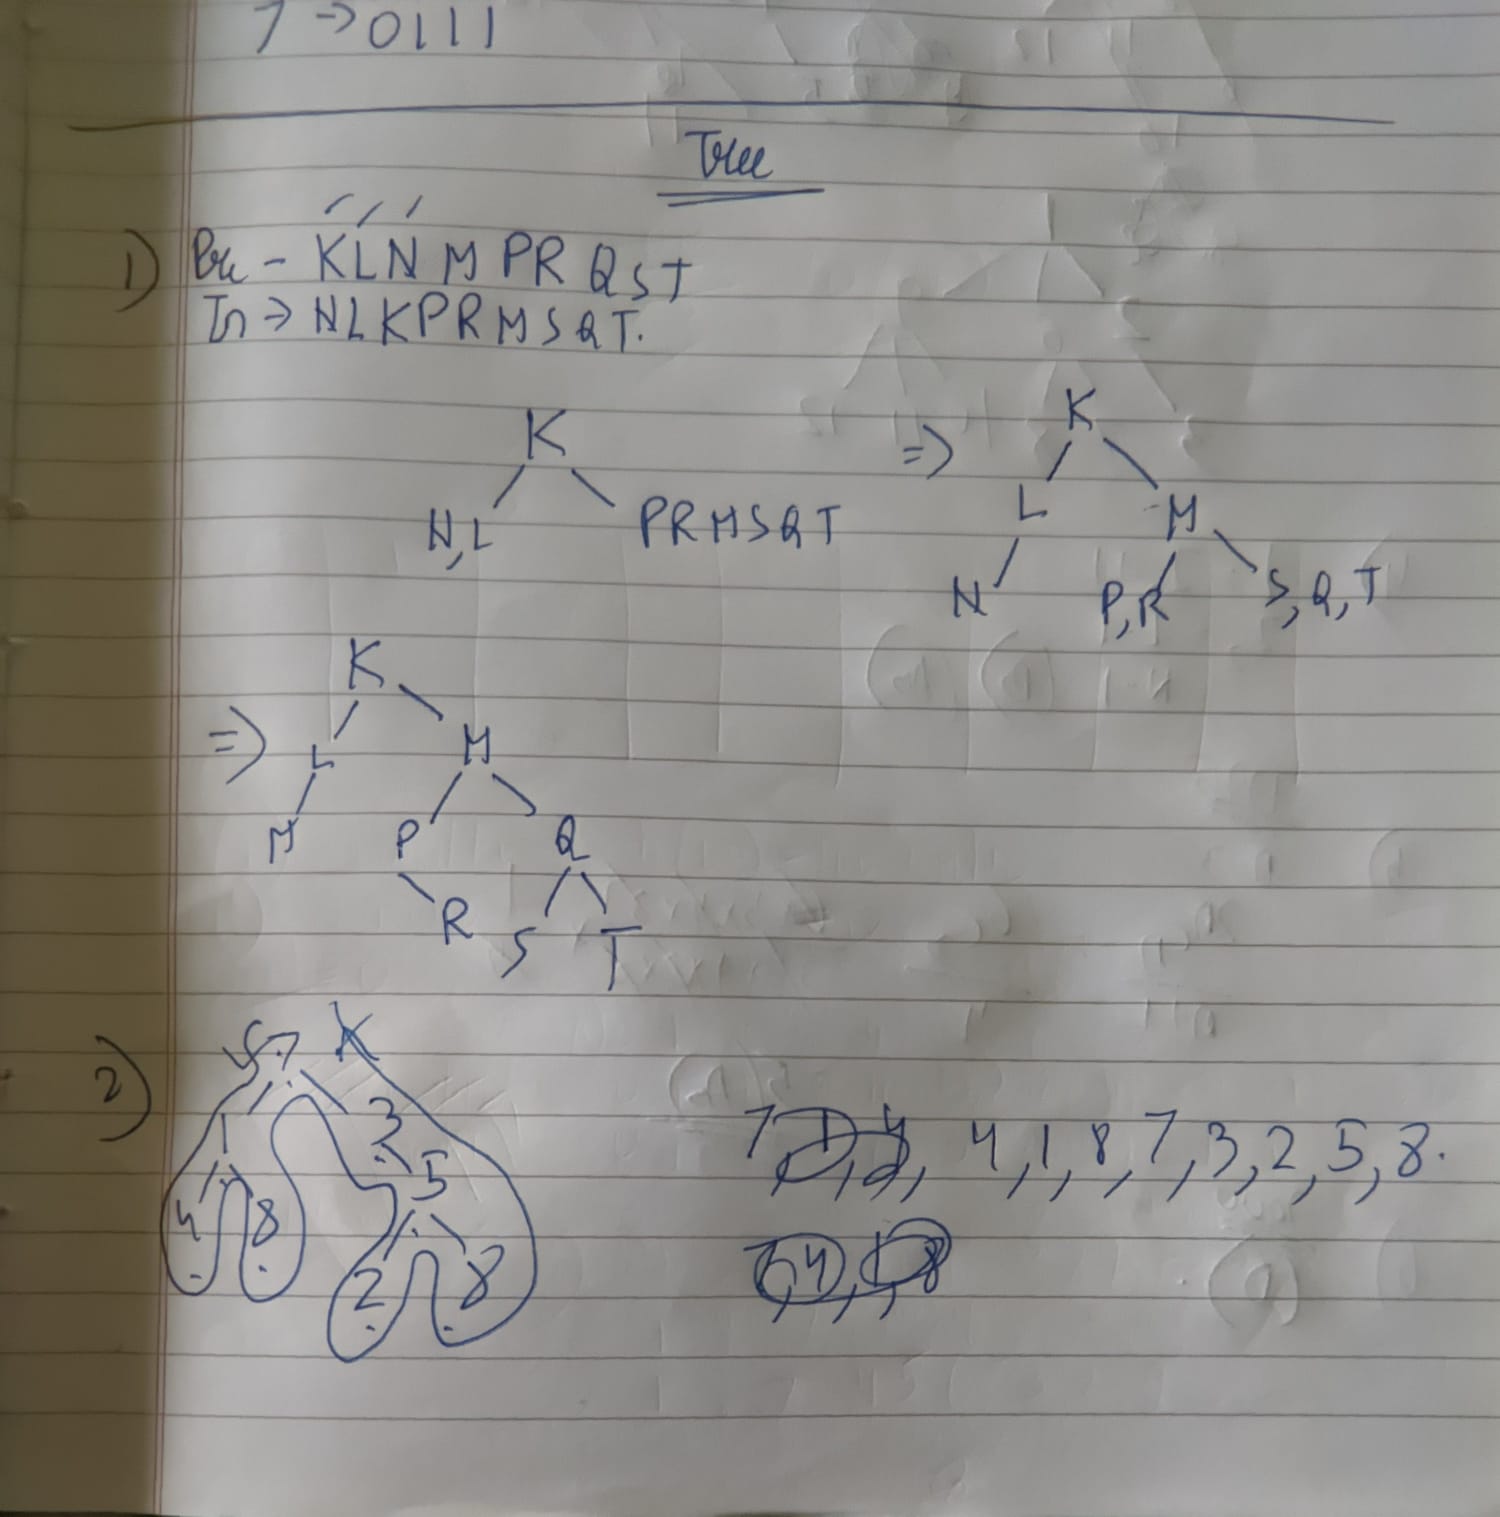 7 → 0111
Tree
1) Pre - KLNMPRQST
In ⇒ NLKPRMSQT.
K
N,L PRMSQT
⇒ K
L M
N P,R S,Q,T
⇒ K
L M
M P Q
R S T
2) 7
1 3
4 8 5
2 8
4,1,8,7,3,2,5,8.